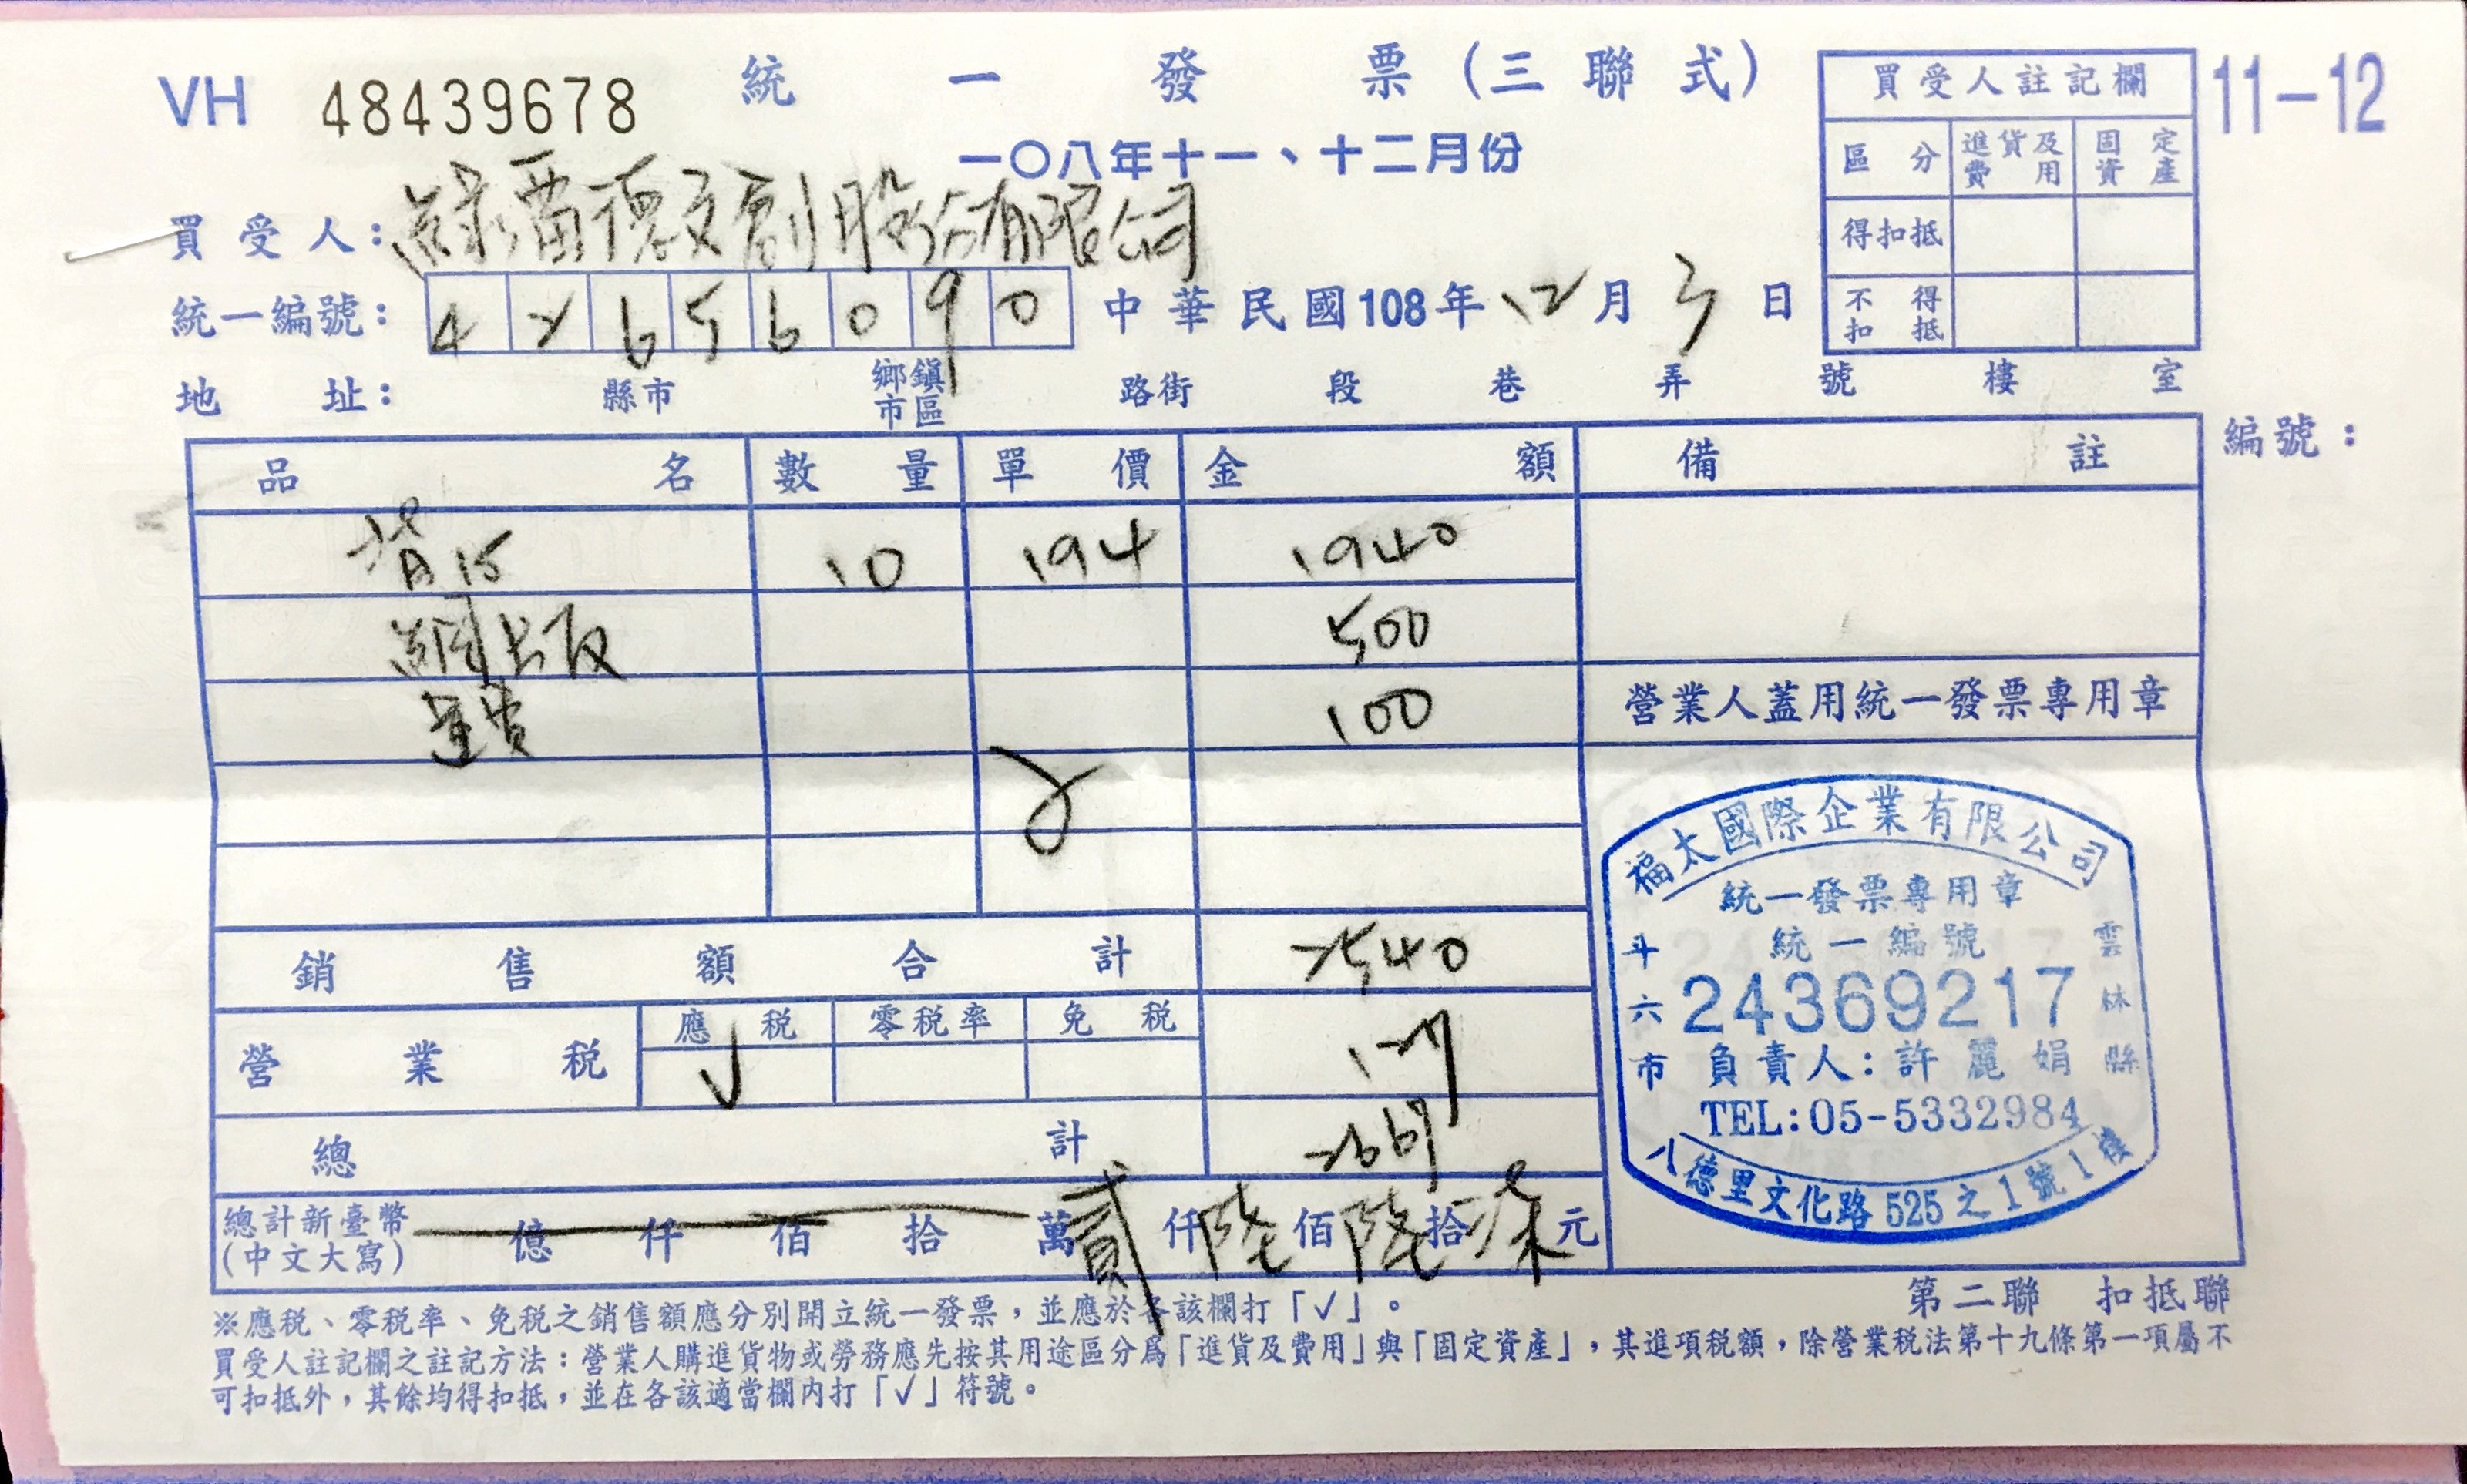 VH 48439678 統一發票(三聯式) 11-12
一〇八年十一、十二月份
買受人註記欄
區分 進貨及費用 固定資產
得扣抵
不得扣抵
買受人: 綠雷德文創股份有限公司
統一編號: 42656090 中華民國108年12月3日
地址: 縣市 鄉鎮市區 路街 段 巷 弄 號 樓 室
品名 數量 單價 金額 備註 編號:
背心 10 194 1940
網版 500
運費 100
營業人蓋用統一發票專用章
銷售額合計 2540
營業稅 應稅 零稅率 免稅 127
√
總計 2667
總計新臺幣(中文大寫) 億 仟 佰 拾 萬 貳仟陸佰陸拾柒元
福太國際企業有限公司
統一發票專用章
統一編號
24369217
負責人:許麗娟
TEL:05-5332984
雲林縣
斗六市
八德里文化路525之1號1樓
第二聯 扣抵聯
※應稅、零稅率、免稅之銷售額應分別開立統一發票,並應於各該欄打「√」。
買受人註記欄之註記方法:營業人購進貨物或勞務應先按其用途區分為「進貨及費用」與「固定資產」,其進項稅額,除營業稅法第十九條第一項屬不
可扣抵外,其餘均得扣抵,並在各該適當欄內打「√」符號。